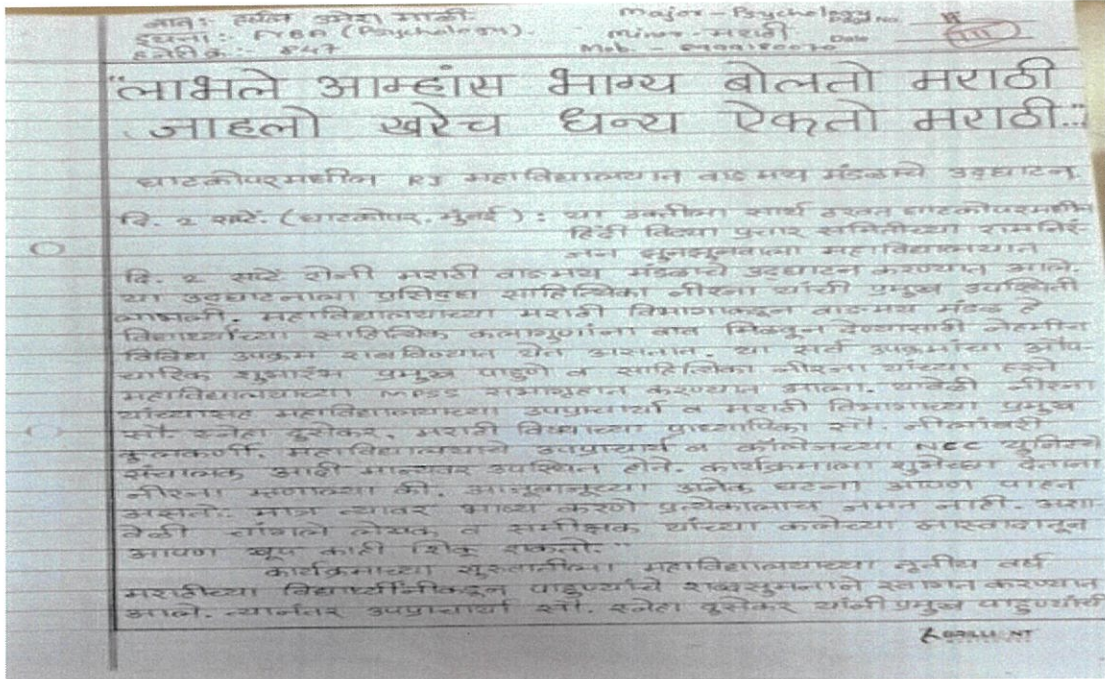 नाव: उमेश माळी. Major - Psychology Page No.
इयत्ता:- FYBA (Psychology). Minor - मराठी Date
847 Mob. -
"लाभले आम्हांस भाग्य बोलतो मराठी
जाहलो खरेच धन्य ऐकतो मराठी..."
घाटकोपरमधील RJ महाविद्यालयात वाङमय मंडळाचे उद्घाटन.
दि. २ सप्टें. (घाटकोपर, मुंबई) : या उक्तीला सार्थ ठरवत घाटकोपरमधील
हिंदी विद्या प्रचार समितीच्या रामनिरं-
जन झुनझुनवाला महाविद्यालयात
दि. २ सप्टें रोजी मराठी वाङमय मंडळाचे उद्घाटन करण्यात आले.
या उद्घाटनाला प्रसिद्ध साहित्यिका नीरजा यांची प्रमुख उपस्थिती
लाभली. महाविद्यालयाच्या मराठी विभागाकडून वाङमय मंडळ हे
विद्यार्थ्यांच्या साहित्यिक कलागुणांना वाव मिळवून देण्यासाठी नेहमीच
विविध उपक्रम राबविण्यात येत असतात. या सर्व उपक्रमांचा औप-
चारिक शुभारंभ प्रमुख पाहुणे व साहित्यिका नीरजा यांच्या हस्ते
महाविद्यालयाच्या MPSS सभागृहात करण्यात आला. यावेळी नीरजा
यांच्यासह महाविद्यालयाच्या उपप्राचार्या व मराठी विभागाच्या प्रमुख
सौ. स्नेहा दुसेकर, मराठी विषयाच्या प्राध्यापिका सौ. नीलांबरी
कुलकर्णी, महाविद्यालयाचे उपप्राचार्य व कॉलेजच्या NCC युनिटचे
संचालक आदी मान्यवर उपस्थित होते. कार्यक्रमाला शुभेच्छा देताना
नीरजा म्हणाल्या की, आजूबाजूच्या अनेक घटना आपण पाहत
असतो. मात्र त्यावर भाष्य करणे प्रत्येकालाच जमत नाही. अशा
वेळी चांगले लेखक व समीक्षक यांच्या कलेच्या आस्वादातून
आपण खूप काही शिकू शकतो."
कार्यक्रमाच्या सुरुवातीला महाविद्यालयाच्या तृतीय वर्ष
मराठीच्या विद्यार्थीनींकडून पाहुण्यांचे शब्दसुमनाने स्वागत करण्यात
आले. त्यानंतर उपप्राचार्या सौ. स्नेहा दुसेकर यांनी प्रमुख पाहुण्यांची
BRILLIANT